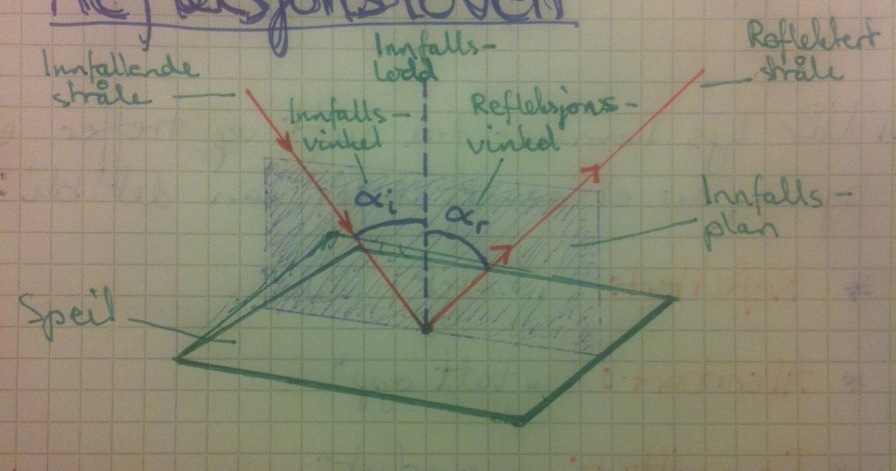 Refleksjonsloven
Innfallende
stråle
Innfalls-
lodd
Reflektert
stråle
Innfalls-
vinkel
Refleksjons-
vinkel
αi
αr
Innfalls-
plan
Speil